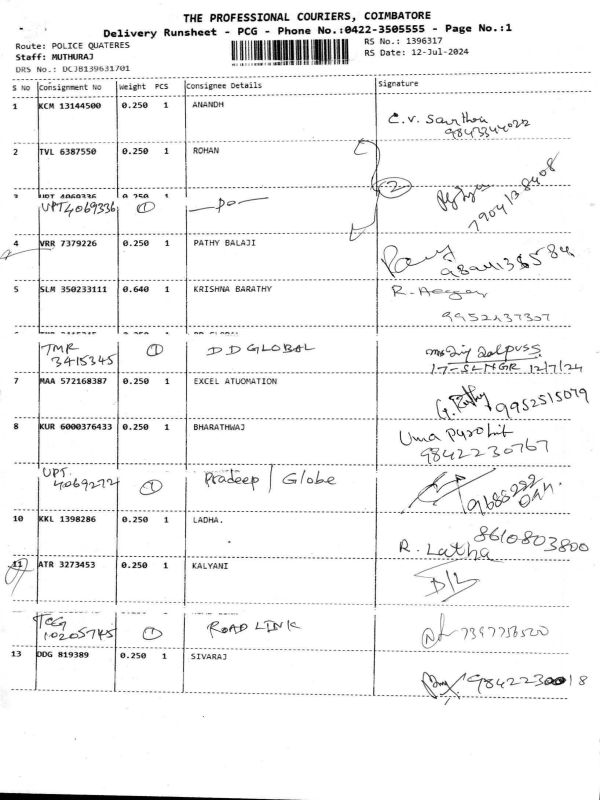 THE PROFESSIONAL COURIERS, COIMBATORE
Delivery Runsheet - PCG - Phone No.:0422-3505555 - Page No.:1
Route: POLICE QUATERES
RS No.: 1396317
Staff: MUTHURAJ
RS Date: 12-Jul-2024
DRS No.: DCJB139631701
S No Consignment No Weight PCS Consignee Details Signature
1 KCM 13144500 0.250 1 ANANDH
C.V. 
9843344022
2 TVL 6387550 0.250 1 ROHAN
3 UPT 4069336 0.250 1
UPT 4069336 1 -do- 2
7904138408
4 VRR 7379226 0.250 1 PATHY BALAJI
5 SLM 350233111 0.640 1 KRISHNA BARATHY
R.
9952437307
TMR 3415345 1 DD GLOBAL
17-SLNGR 12/7/24
7 MAA 572168387 0.250 1 EXCEL ATUOMATION
9952515079
8 KUR 6000376433 0.250 1 BHARATHWAJ
Uma Purohit
9842230767
UPT. 4069272 1 Pradeep / Globe
10 KKL 1398286 0.250 1 LADHA.
8610803800
R. Latha
11 ATR 3273453 0.250 1 KALYANI
D/L
TCG 10205745 1 ROAD LINK
7397756520
13 DDG 819389 0.250 1 SIVARAJ